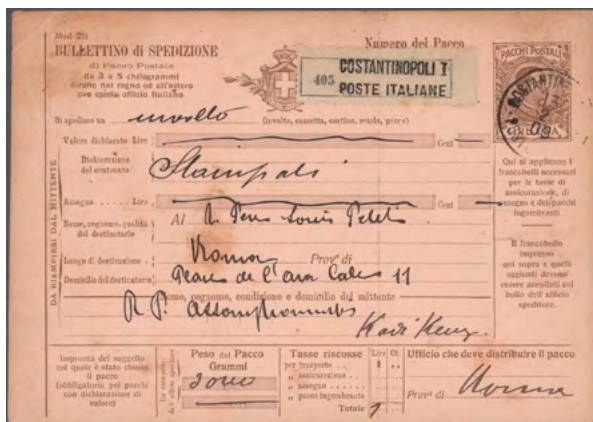 Mod. 251
BULLETTINO di SPEDIZIONE
di Pacco Postale
da 3 a 5 chilogrammi
diretto nel regno od all'estero
ove esista ufficio Italiano
Numero del Pacco
405 COSTANTINOPOLI 1
POSTE ITALIANE
PACCHI POSTALI
COSTANTIN
13
2
09
Si spedisce un involto (involto, cassetta, cestino, ecc.)
Valore dichiarato Lire Cent
Dichiarazione del contenuto Stampati
Assegno Lire Cent
Nome, cognome, qualità del destinatario Al R. Père Louis Petit
Luogo di destinazione Roma Prov.ª di
Domicilio del destinatario de l'Ara Coeli 11
Nome, cognome, condizione e domicilio del mittente
R P. Assomptionnistes
Kadi Keuy.
DA RIEMPIRSI DAL MITTENTE
Qui si applicano i
francobolli necessari
per le tasse di
assicurazione, di
assegno e dei pacchi
ingombranti
Il francobollo
impresso
qui sopra e quelli
aggiunti devono
essere annullati col
bollo dell'ufficio
speditore.
Impronta del suggello
col quale è stato chiuso
il pacco
(obbligatoria pei pacchi
con dichiarazione di
valore)
Peso del Pacco
Grammi
3000
Tasse riscosse Lire Ct.
per trasporto 1
„ assicurazione
„ assegno
„ pacco ingombrante
Totale 1
Ufficio che deve distribuire il pacco
Roma
Prov.ª di